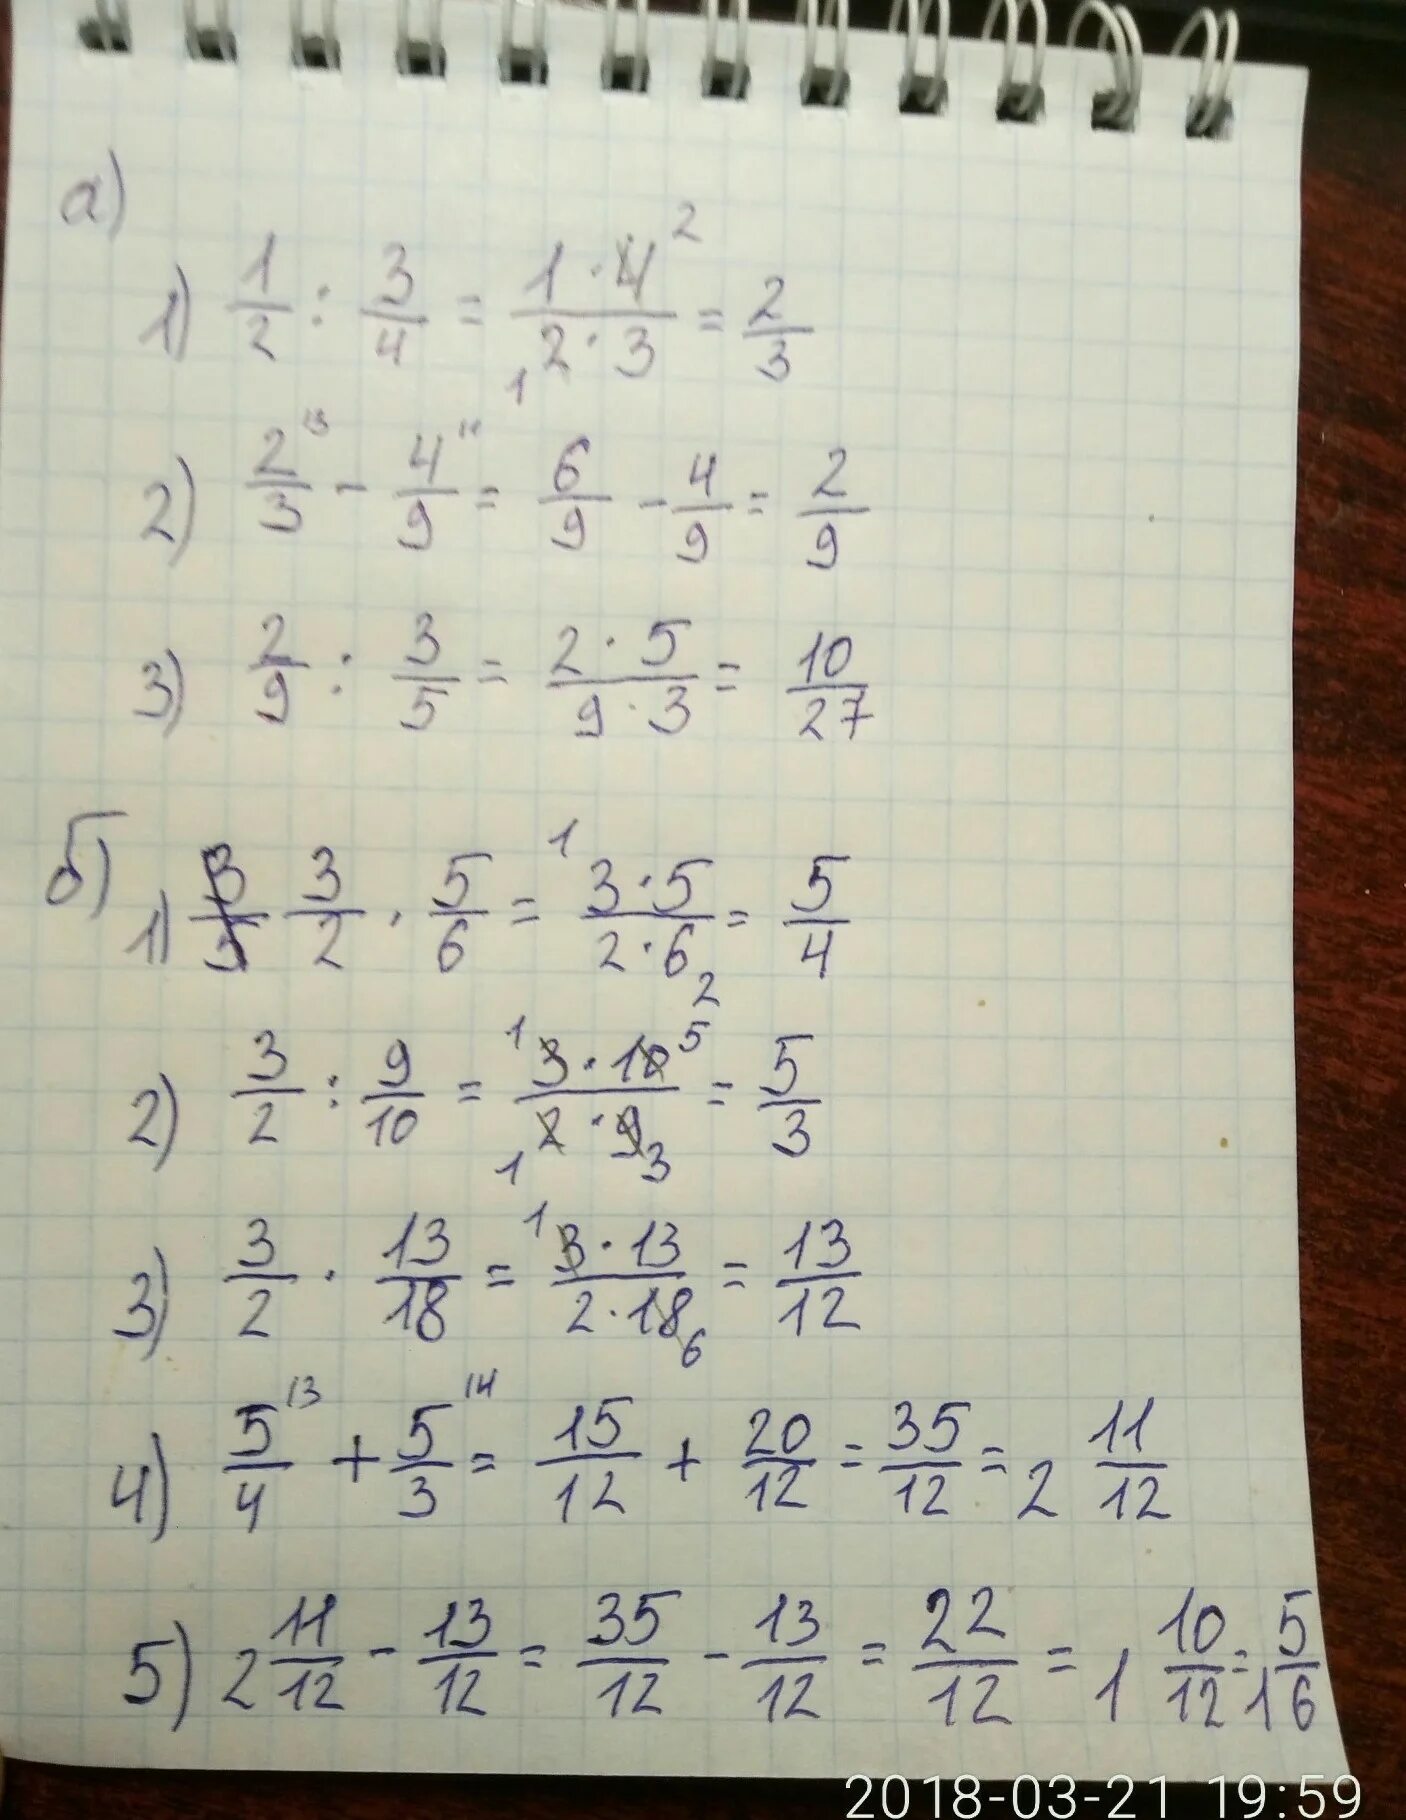 а)
1) 1/2 : 3/4 = 1·4 2 / 1 2·3 = 2/3
2) 2/3 |3 - 4/9 |1 = 6/9 - 4/9 = 2/9
3) 2/9 : 3/5 = 2·5/9·3 = 10/27
б)
1) 3/2 · 5/6 = 1 3·5/2·6 2 = 5/4
2) 3/2 : 9/10 = 1 3·10 5 / 1 2·9 3 = 5/3
3) 3/2 · 13/18 = 1 3·13/2·18 6 = 13/12
4) 5/4 |3 + 5/3 |4 = 15/12 + 20/12 = 35/12 = 2 11/12
5) 2 11/12 - 13/12 = 35/12 - 13/12 = 22/12 = 1 10/12 = 1 5/6
2018-03-21 19:59